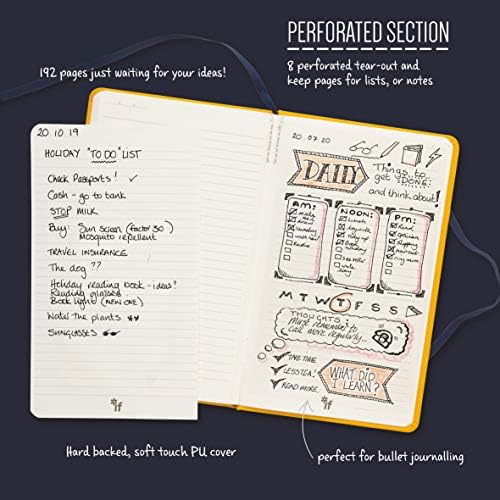 PERFORATED SECTION
8 perforated tear-out and
keep pages for lists, or notes
192 pages just waiting for your ideas!
20.10.19
HOLIDAY "TO DO" LIST
Check Passports! ✓
Cash - go to tank
STOP MILK
Buy: Sun screen (factor 30)
Mosquito repellent
TRAVEL INSURANCE
The dog ??
Holiday reading book - ideas!
Reading glasses
Book light (NEW ONE)
Water the plants **
SUNGLASSES
if
20.07.20
DAILY
Things to
get DONE
and think about!
AM:
NOON:
PM:
M T W T F S S
THOUGHTS:
Must remember to
call more regularly.
✓ TAKE TIME.
✓ LESS TEA!
✓ READ MORE.
WHAT DID
I LEARN?
if
Hard backed, soft touch PU cover
perfect for bullet journalling